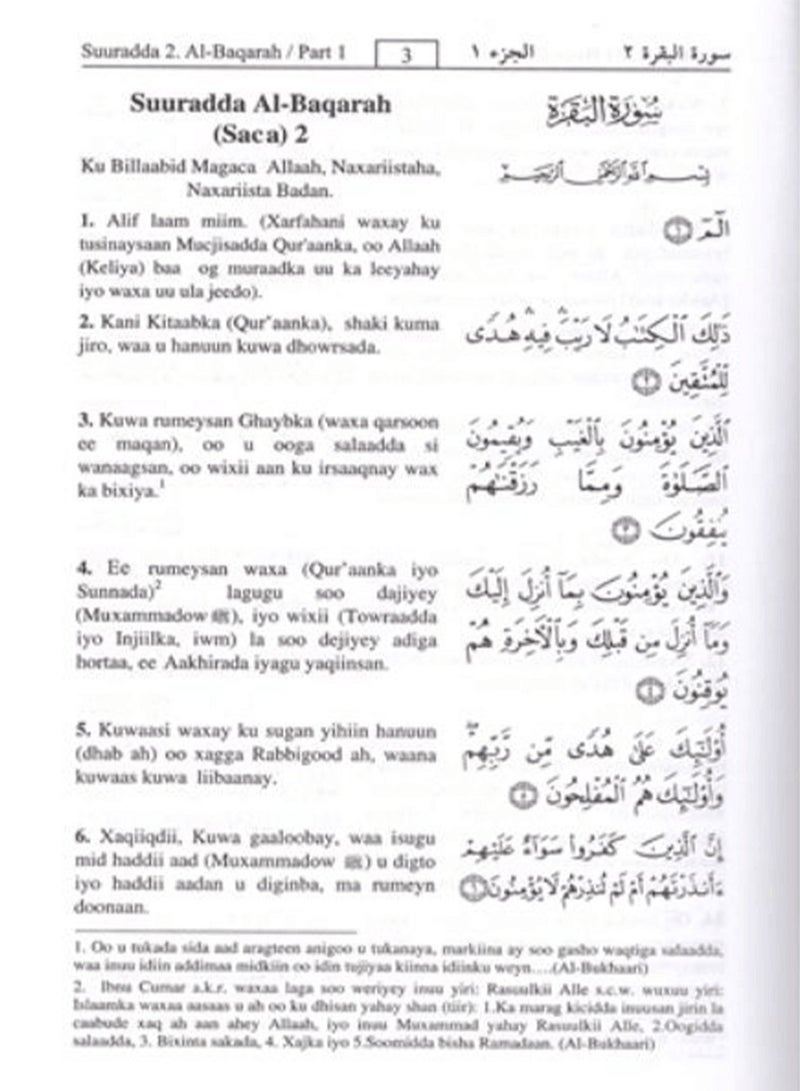 Suuradda 2. Al-Baqarah / Part 1 3 الجزء ١ سورة البقرة ٢
Suuradda Al-Baqarah
(Saca) 2
Ku Billaabid Magaca Allaah, Naxariistaha,
Naxariista Badan.
1. Alif laam miim. (Xarfahani waxay ku
tusinaysaan Mucjisadda Qur'aanka, oo Allaah
(Keliya) baa og muraadka uu ka leeyahay
iyo waxa uu ula jeedo).
2. Kani Kitaabka (Qur'aanka), shaki kuma
jiro, waa u hanuun kuwa dhowrsada.
3. Kuwa rumeysan Ghaybka (waxa qarsoon
ee maqan), oo u ooga salaadda si
wanaagsan, oo wixii aan ku irsaaqnay wax
ka bixiya.¹
4. Ee rumeysan waxa (Qur'aanka iyo
Sunnada)² lagugu soo dajiyey
(Muxammadow ﷺ), iyo wixii (Towraadda
iyo Injiilka, iwm) la soo dejiyey adiga
hortaa, ee Aakhirada iyagu yaqiinsan.
5. Kuwaasi waxay ku sugan yihiin hanuun
(dhab ah) oo xagga Rabbigood ah, waana
kuwaas kuwa liibaanay.
6. Xaqiiqdii, Kuwa gaaloobay, waa isugu
mid haddii aad (Muxammadow ﷺ) u digto
iyo haddii aadan u diginba, ma rumeyn
doonaan.
سُورَةُ البَقَرَةِ
بِسْمِ اللَّهِ الرَّحْمَٰنِ الرَّحِيمِ
الٓمٓ ١
ذَٰلِكَ ٱلْكِتَٰبُ لَا رَيْبَ ۛ فِيهِ ۛ هُدًى
لِّلْمُتَّقِينَ ٢
ٱلَّذِينَ يُؤْمِنُونَ بِٱلْغَيْبِ وَيُقِيمُونَ
ٱلصَّلَوٰةَ وَمِمَّا رَزَقْنَٰهُمْ
يُنفِقُونَ ٣
وَٱلَّذِينَ يُؤْمِنُونَ بِمَآ أُنزِلَ إِلَيْكَ
وَمَآ أُنزِلَ مِن قَبْلِكَ وَبِٱلْءَاخِرَةِ هُمْ
يُوقِنُونَ ٤
أُو۟لَٰٓئِكَ عَلَىٰ هُدًى مِّن رَّبِّهِمْ ۖ
وَأُو۟لَٰٓئِكَ هُمُ ٱلْمُفْلِحُونَ ٥
إِنَّ ٱلَّذِينَ كَفَرُوا۟ سَوَآءٌ عَلَيْهِمْ
ءَأَنذَرْتَهُمْ أَمْ لَمْ تُنذِرْهُمْ لَا يُؤْمِنُونَ ٦
1. Oo u tukada sida aad aragteen anigoo u tukanaya, markiina ay soo gasho waqtiga salaadda,
waa inuu idiin addimaa midkiin oo idin tujiyaa kiinna idiinku weyn....(Al-Bukhaari)
2. Ibnu Cumar a.k.r. waxaa laga soo weriyey inuu yiri: Rasuulkii Alle s.c.w. wuxuu yiri:
Islaamka waxaa aasaas u ah oo ku dhisan yahay shan (tiir): 1.Ka marag kicidda inuusan jirin la
caabude xaq ah aan ahey Allaah, iyo inuu Muxammad yahay Rasuulkii Alle, 2.Oogidda
salaadda, 3. Bixinta sakada, 4. Xajka iyo 5.Soomidda bisha Ramadaan. (Al-Bukhaari)